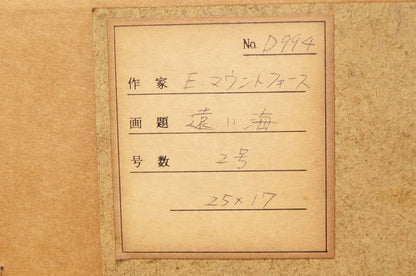 No. D994
作家 E.マウントフォース
画題 遠い海
号数 2号
25×17